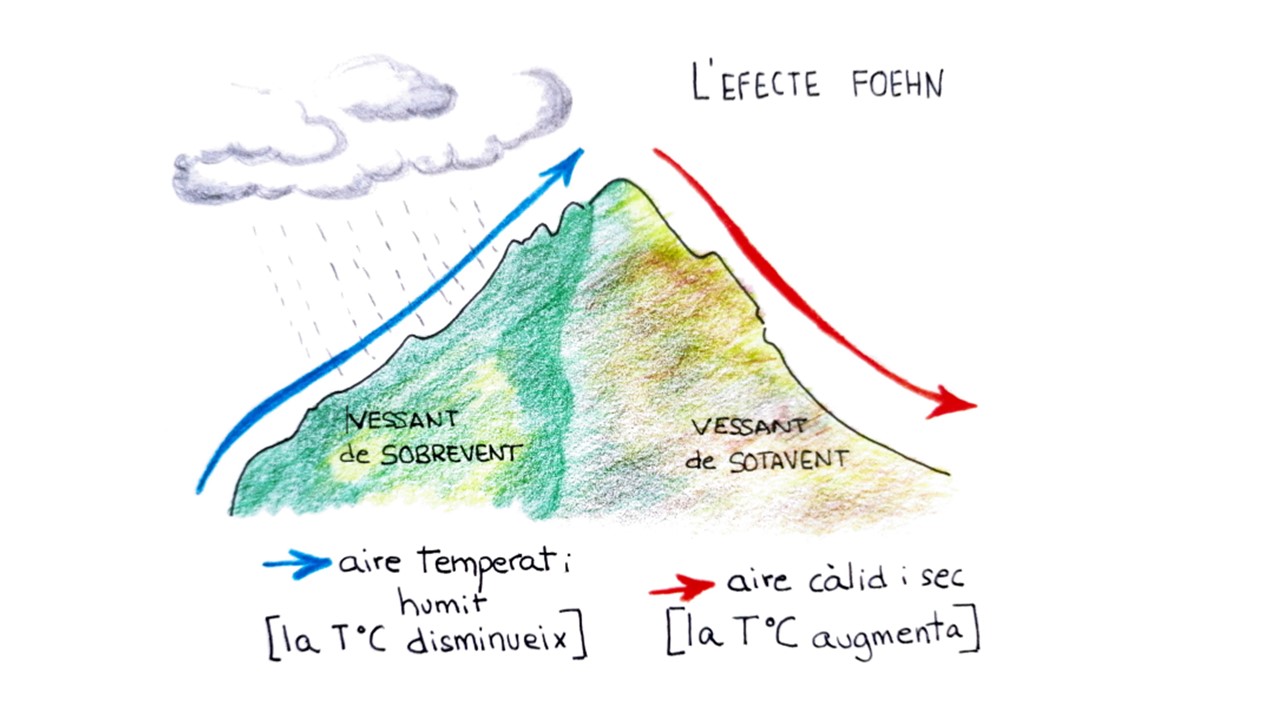 L'EFECTE FOEHN
VESSANT
de SOBREVENT
VESSANT
de SOTAVENT
aire temperat i
humit
[la T°C disminueix]
aire càlid i sec
[la T°C augmenta]